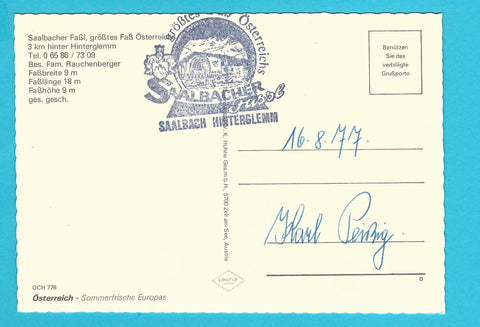 Saalbacher Faßl, größtes Faß Österreichs
3 km hinter Hinterglemm
Tel. 0 65 86 / 73 09
Bes. Fam. Rauchenberger
Faßbreite 9 m
Faßlänge 18 m
Faßhöhe 9 m
ges. gesch.
größtes Faß Österreichs
SAALBACHER
SAALBACH HINTERGLEMM
Benützen
Sie das
verbilligte
Grußporto
16.8.77.
Karl
K. Huhne Ges.m.b.H., 5700 Zell am See, Austria
OCH 776
Österreich - Sommerfrische Europas